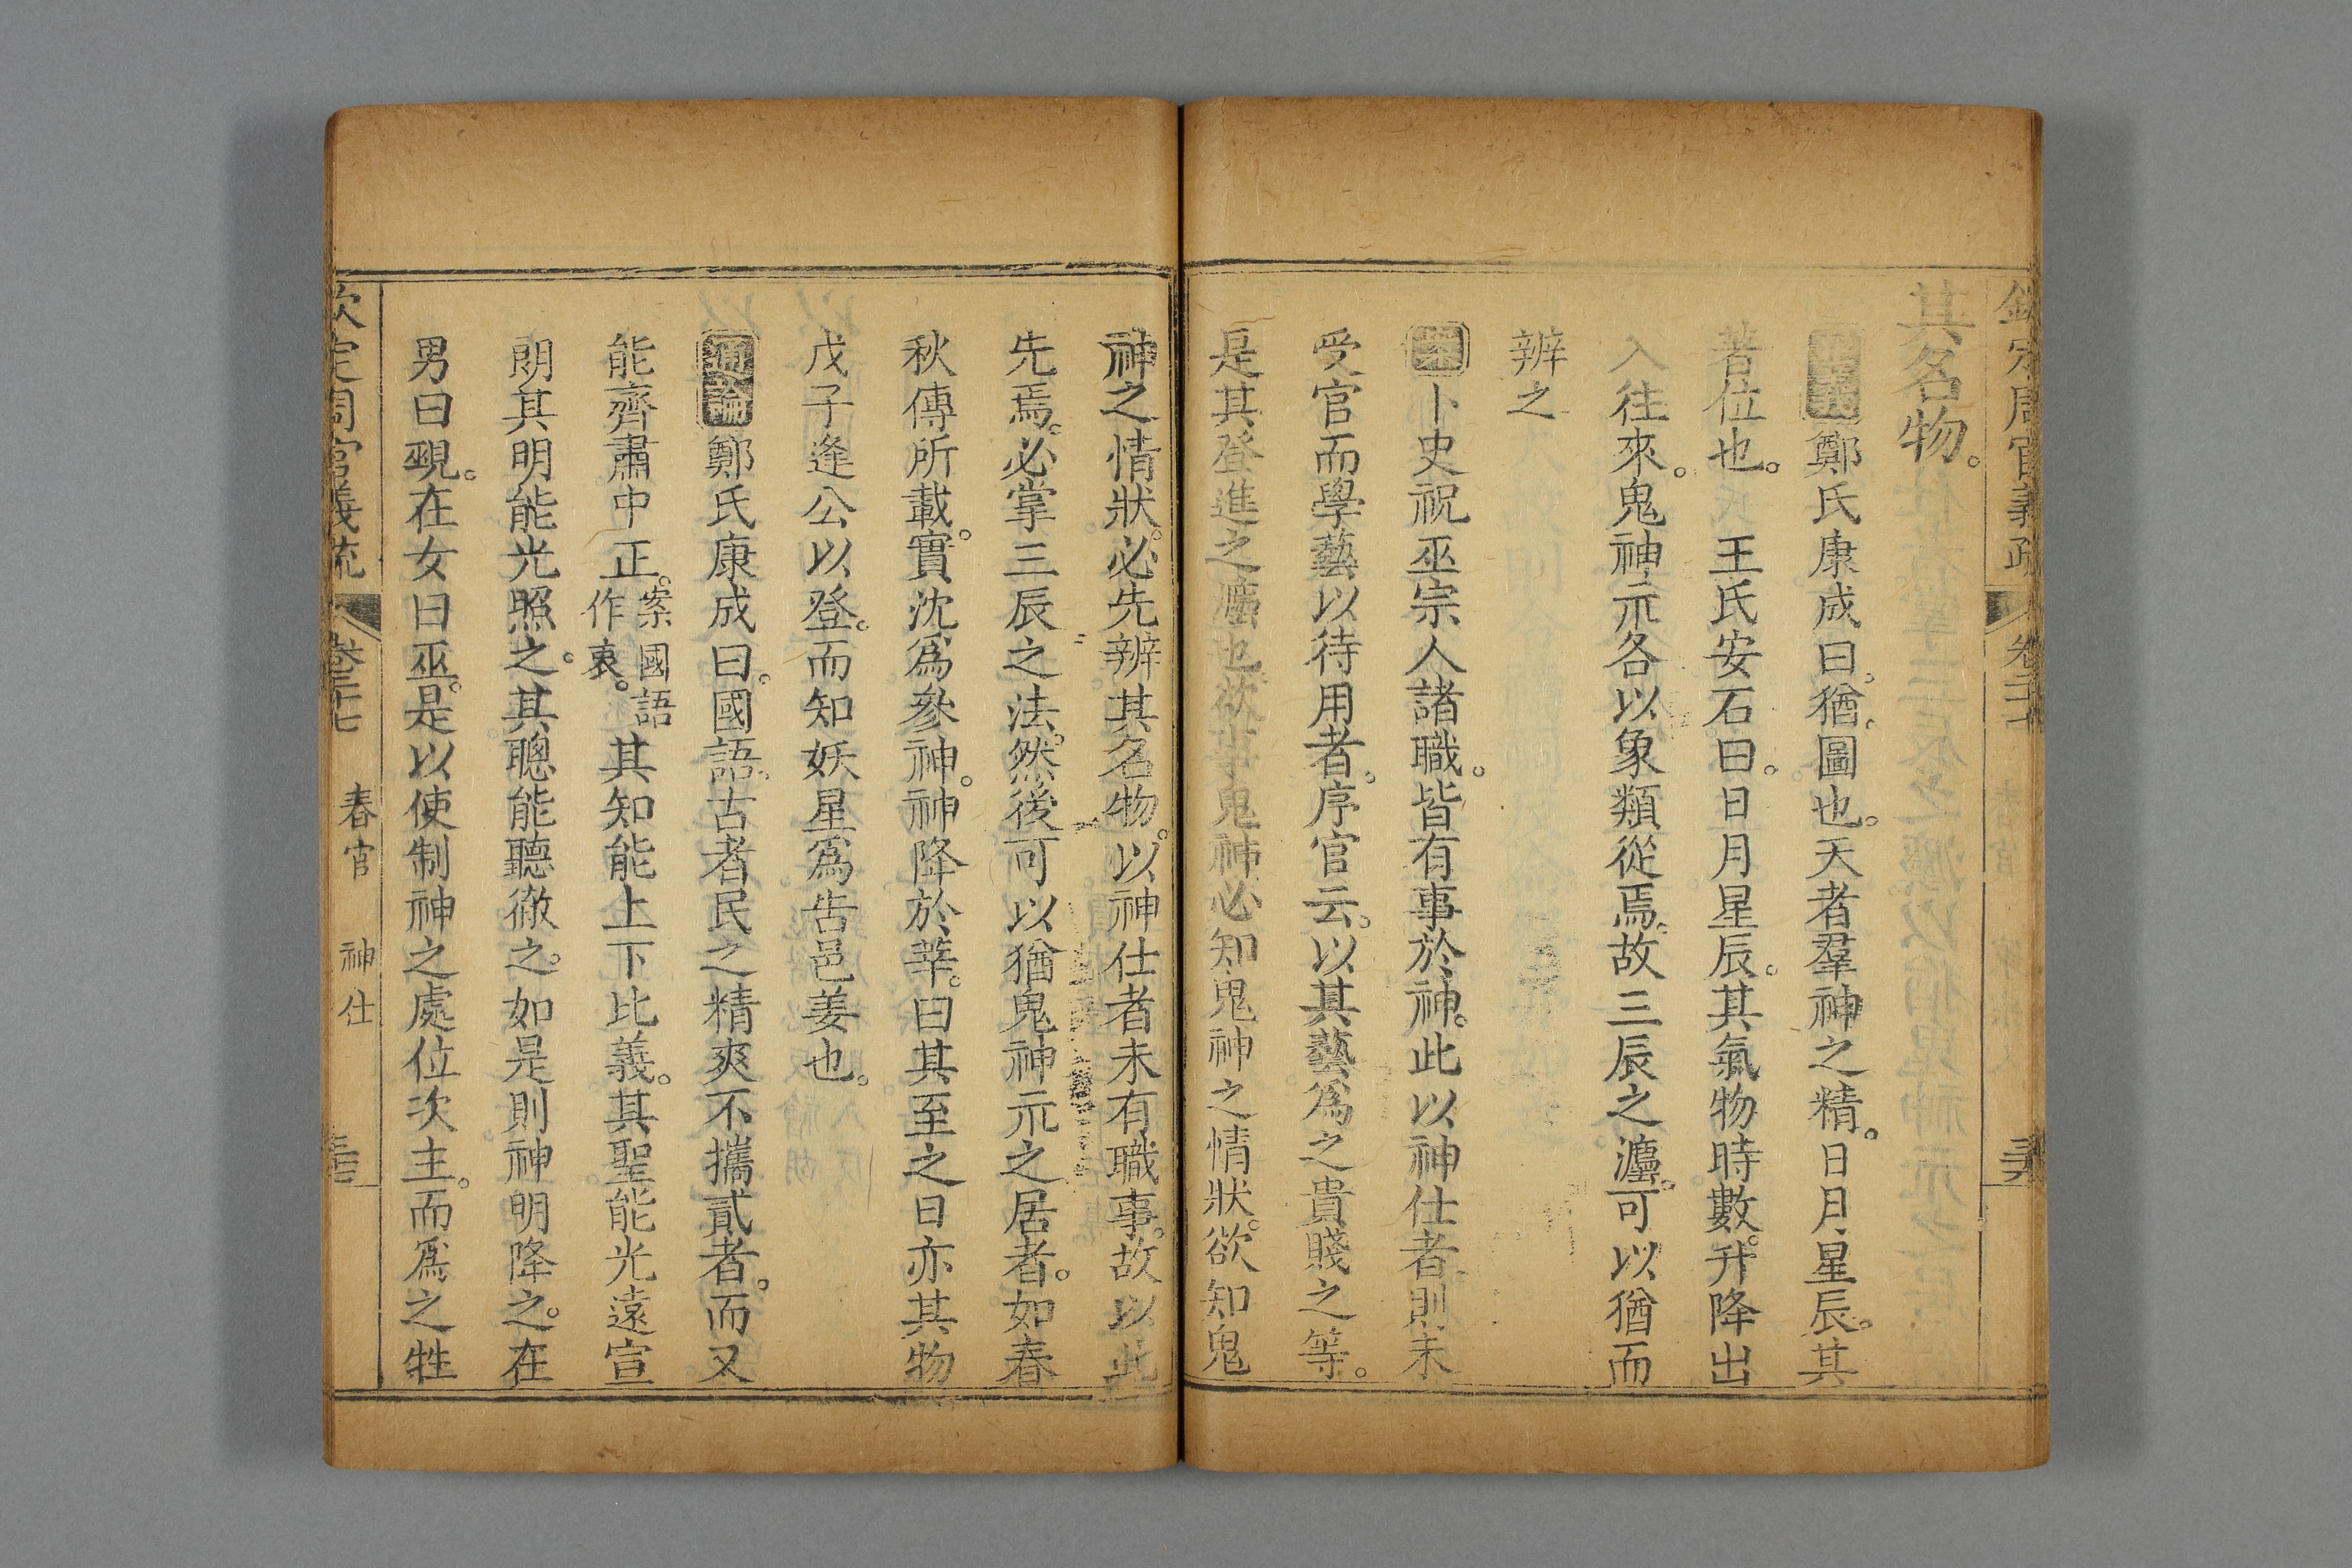 欽定周官義疏 卷二十七
其名物。
鄭氏康成曰。猶。圖也。天者羣神之精。日月星辰。其
著位也。王氏安石曰。日月星辰。其氣物時數。升降出
入往來。鬼神示各以象類從焉。故三辰之灋。可以猶而
辨之
案卜史祝巫宗人諸職。皆有事於神。此以神仕者。則未
受官而學藝以待用者。序官云。以其藝爲之貴賤之等。
是其登進之灋也。欲事鬼神必知鬼神之情狀。欲知鬼
神之情狀。必先辨其名物。以神仕者未有職事。故以此
先焉。必掌三辰之法。然後可以猶鬼神示之居者。如春
秋傳所載。實沈爲參神。神降於莘。曰其至之日亦其物
戊子逢公以登。而知妖星爲告邑姜也。
通論鄭氏康成曰。國語。古者民之精爽不攜貳者。而又
能齊肅中正。案國語作衷。其知能上下比義。其聖能光遠宣
朗其明能光照之。其聰能聽徹之。如是則神明降之。在
男曰覡。在女曰巫。是以使制神之處位次主。而爲之牲
欽定周官義疏 卷三十七 春官 神仕